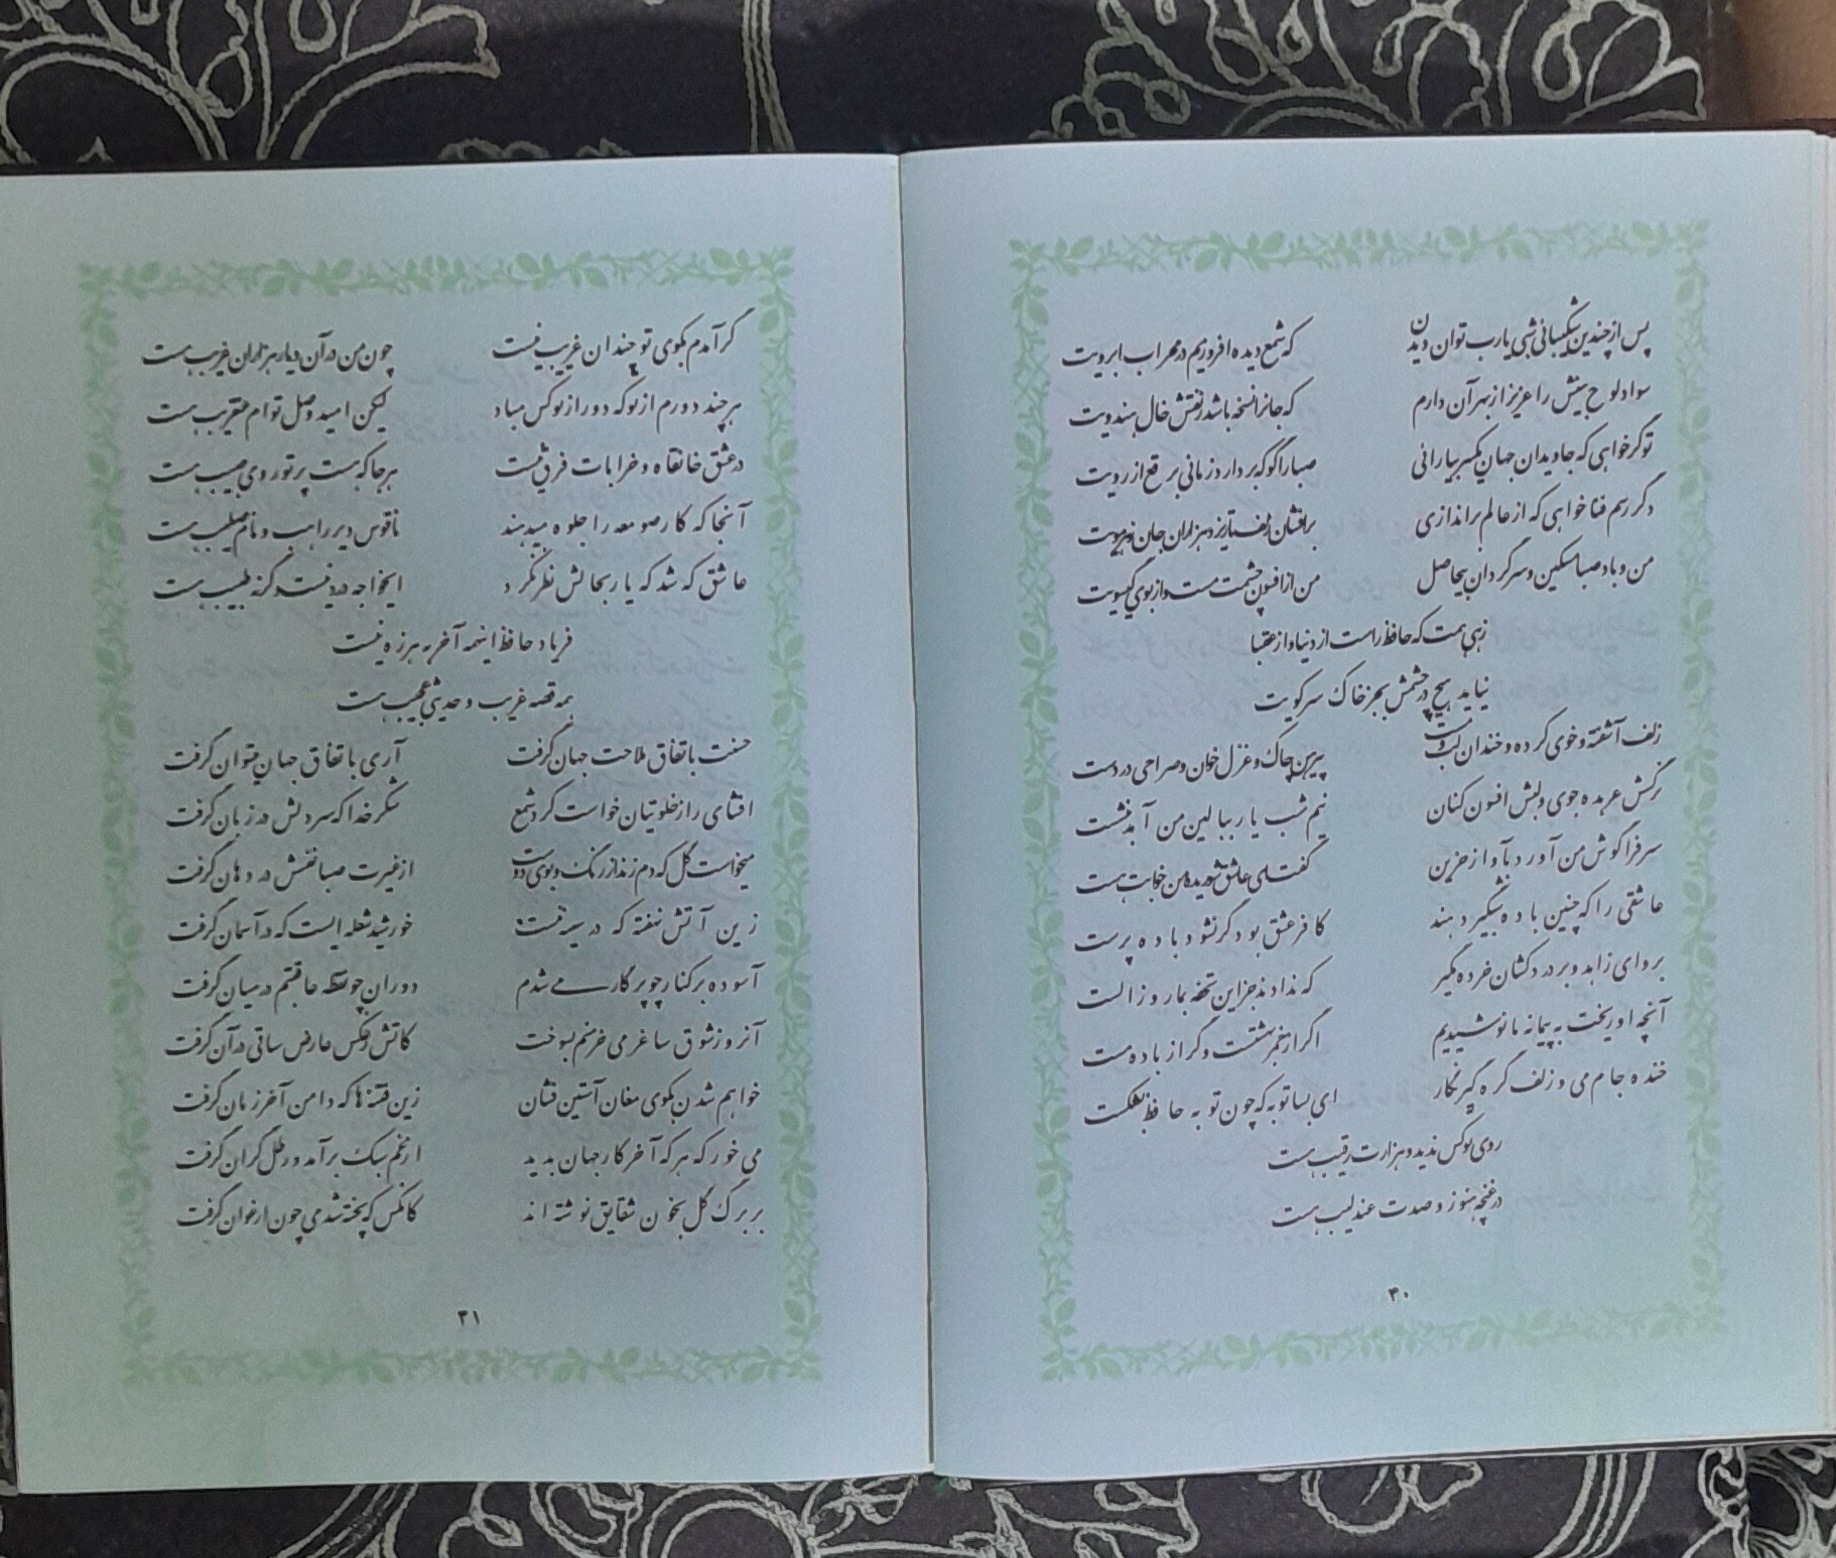 پس از چندین شکیبائی شبی یارب توان دیدن که شمع دیده افروزیم در محراب ابرویت
سواد لوح بینش را عزیز از بهر آن دارم که جانرا نسخه باشد ز نقش خال هندویت
تو گر خواهی که جاویدان جهان یکسر بیارائی صبا را گو که بردارد زمانی برقع از رویت
دگر رسم فنا خواهی که از عالم براندازی برافشان زلف تا ریزد هزاران جان ز هر مویت
من و باد صبا مسکین و سرگردان بیحاصل من از افسون چشمت مست و او از بوی گیسویت
زهی همت که حافظ راست از دنیا و از عقبا
نیاید هیچ در چشمش بجز خاک سر کویت
زلف آشفته و خوی کرده و خندان لب و مست پیرهن چاک و غزل خوان و صراحی در دست
نرگسش عربده جوی و لبش افسون کنان نیم شب یار ببالین من آمد بنشست
سر فرا گوش من آورد بآواز حزین گفت ای عاشق شوریده من خوابت هست
عاشقی را که چنین باده شبگیر دهند کافر عشق بود گر نشود باده پرست
برو ای زاهد و بر دردکشان خرده مگیر که ندادند جز این تحفه بما روز الست
آنچه او ریخت به پیمانه ما نوشیدیم اگر از خمر بهشتست وگر از باده مست
خنده جام می و زلف گره گیر نگار ای بسا توبه که چون توبه حافظ بشکست
روی تو کس ندید و هزارت رقیب هست
در غنچه هنوز و صدت عندلیب هست
۳۰
گر آمدم بکوی تو چندان غریب نیست چون من در آن دیار هزاران غریب هست
هرچند دورم از تو که دور از تو کس مباد لیکن امید وصل توام عنقریب هست
در عشق خانقاه و خرابات فرق نیست هرجا که هست پرتو روی حبیب هست
آنجا که کار صومعه را جلوه میدهند ناقوس دیر راهب و نام صلیب هست
عاشق که شد که یار بحالش نظر نکرد ایخواجه درد نیست وگرنه طبیب هست
فریاد حافظ اینهمه آخر به هرزه نیست
همه قصه غریب و حدیثی عجیب هست
حسنت باتفاق ملاحت جهان گرفت آری باتفاق جهان میتوان گرفت
افشای راز خلوتیان خواست کرد شمع شکر خدا که سر دلش در زبان گرفت
میخواست گل که دم زند از رنگ و بوی دوست از غیرت صبا نفسش در دهان گرفت
زین آتش نهفته که در سینه منست خورشید شعله ایست که در آسمان گرفت
آسوده بر کنار چو پرگار می شدم دوران چو نقطه عاقبتم در میان گرفت
آنروز شوق ساغر می خرمنم بسوخت کاتش ز عکس عارض ساقی در آن گرفت
خواهم شدن بکوی مغان آستین فشان زین فتنه ها که دامن آخر زمان گرفت
می خور که هر که آخر کار جهان بدید از غم سبک برآمد و رطل گران گرفت
بر برگ گل بخون شقایق نوشته اند کانکس که پخته شد می چون ارغوان گرفت
۳۱